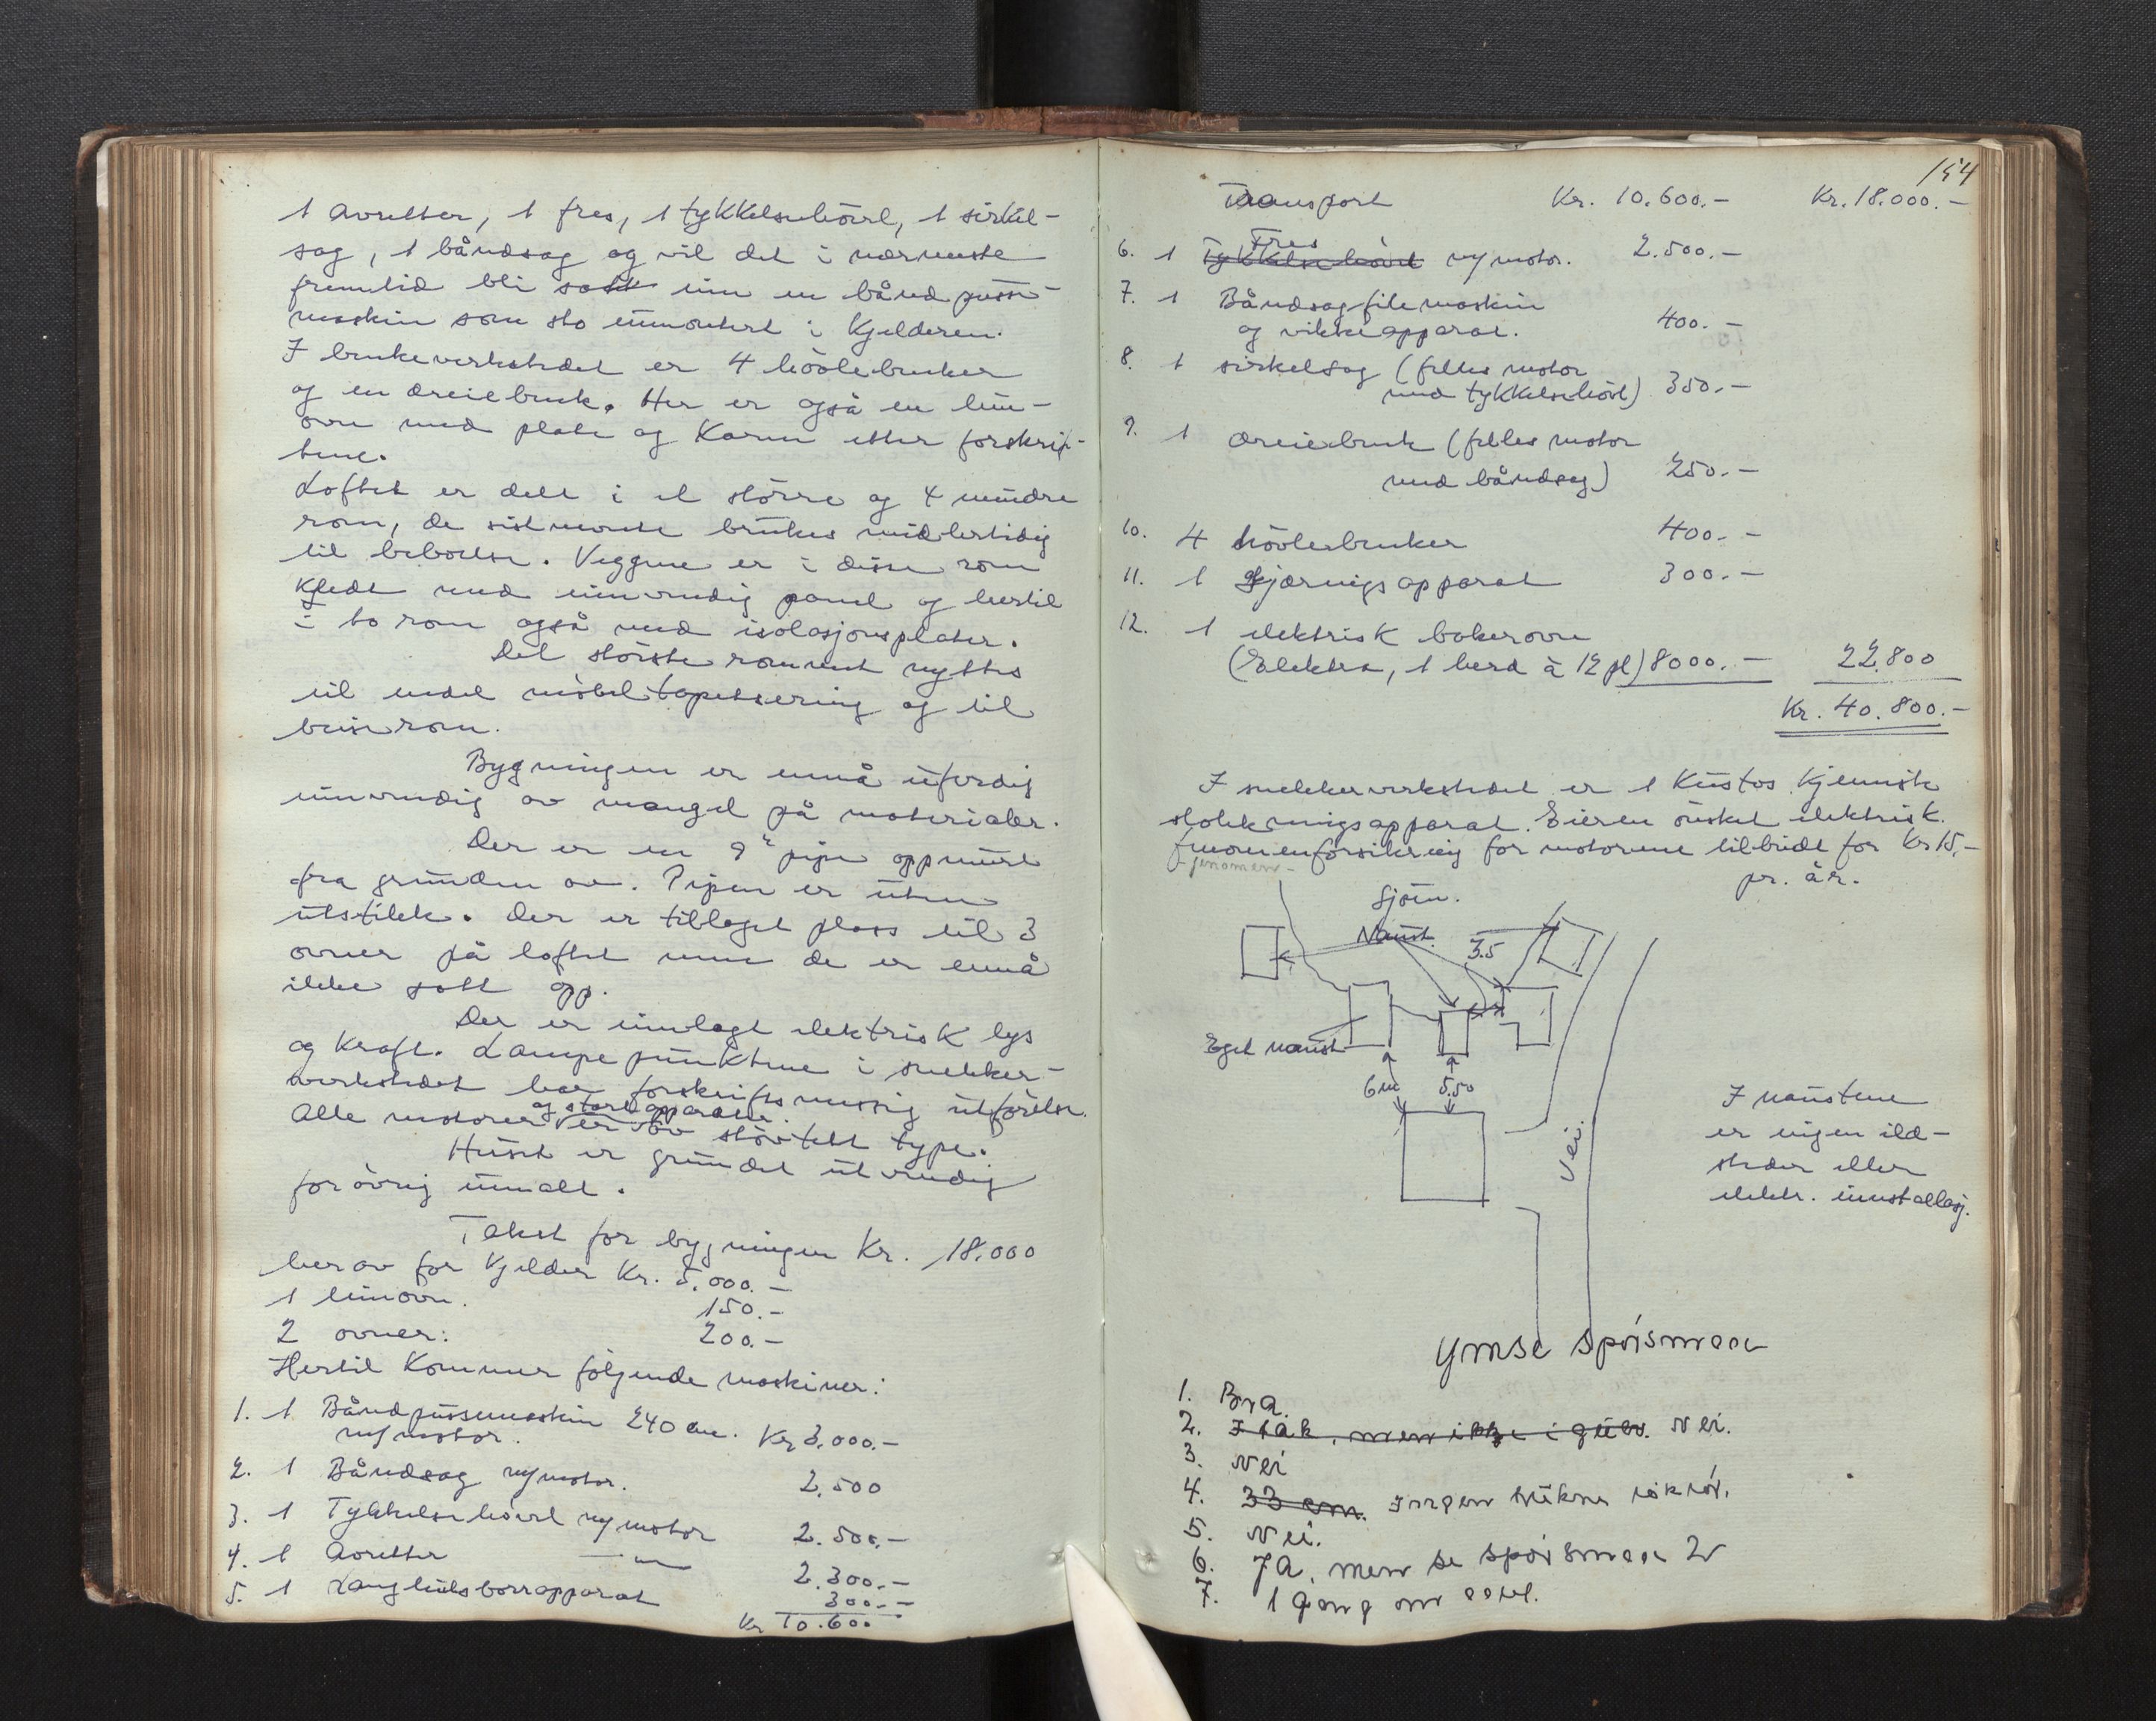 1 avretter, 1 fres, 1 tykkelsehövl, 1 sirkel-
sag, 1 båndsag og vil det i nærmeste
fremtid bli satt inn en båndpusse-
maskin som sto umontert i kjelderen.
I benkeverkstedet er 4 hövlebenker
og en dreiebenk. Her er også en lim-
ovn med plate og karm etter forskrif-
tene.
Loftet er delt i et större og 4 mindre
rom, de sistnevnte brukes midlertidig
til beboelse. Veggene er i disse rom
kledt med innvendig panel og hertil
i to rom også med isolasjonsplater.
Det störste rommet nyttes
til endel möbeltapetsering og til
beiserom.
Bygningen er ennå uferdig
innvendig av mangel på materialer.
Der er en 9" pipe oppmurt
fra grunden av. Pipen er uten
utstikk. Der er tillaget plass til 3
ovner på loftet men de er ennå
ikke satt opp.
Der er innlagt elektrisk lys
og kraft. Lampepunktene i snekker-
verkstedet har forskriftsmessig utförelse.
og startapparater
Alle motorer er av stövtett type.
Huset er grundet utvendig
forövrig umalt.
Takst for bygningen Kr. 18.000
herav for kjelder Kr. 5.000.-
1 limovn. 150.-
2 ovner: 200.-
Hertil kommer fölgende maskiner:
1. 1 Båndpussemaskin 240 cm. Kr 3.000.-
m/motor.
2. 1 Båndsag m/motor. 2.500
3. 1 Tykkelsehövl m/motor 2.500.-
4. 1 Avretter —"— 2.300.-
5. 1 Langhulsborrapparat 300.-
Kr 10.600
154
Transport Kr. 10.600.- Kr. 18.000.-
Fres
6. 1 Tykkelsehövl m/motor. 2.500.-
7. 1 Båndsagfilemaskin
og vikkeapparat. 400.-
8. 1 sirkelsag (felles motor
med tykkelsehövl) 350.-
9. 1 dreiebenk (felles motor
med båndsag) 250.-
10. 4 hövlebenker 400.-
11. 1 gjæringsapparat 300.-
12. 1 elektrisk bakerovn
(Elektra, 1 herd à 12 pl) 8000.- 22.800
Kr. 40.800.-
I snekkerverkstedet er 1 Kustos kjemisk
slokkningsapparat. Eieren önsket elektrisk
fenomenforsikring for motorene tilbudt for Kr 15.-
- fenomen -
pr. år.
Sjöen.
Naust.
35
Eget naust
6 m 5.50
Vei.
I naustene
er ingen ild-
steder eller
elektr. innstallasj.
Ymse spörsmaal
1. Bra.
2. I tak, men ikke i gulv. Nei.
3. Nei
4. 33 cm. Ingen
5. Nei.
6. Ja, men se spörsmaal 2
7. 1 gang om